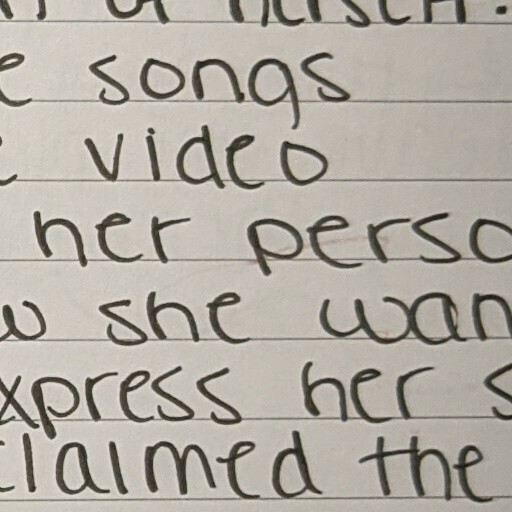 songs
video
her perso
she wan
xpress her s
claimed the